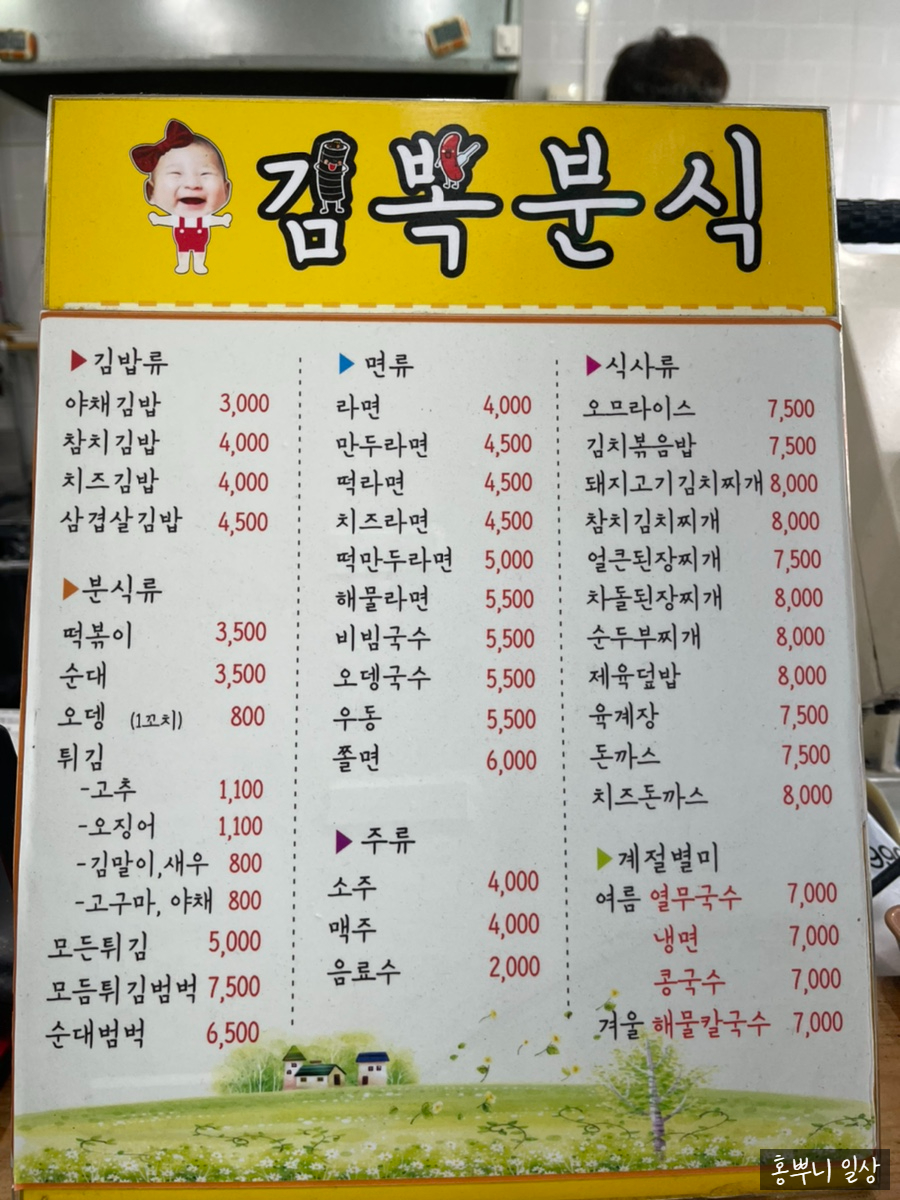 김뽁분식
▶김밥류
야채김밥 3,000
참치김밥 4,000
치즈김밥 4,000
삼겹살김밥 4,500
▶분식류
떡볶이 3,500
순대 3,500
오뎅 (1꼬치) 800
튀김
-고추 1,100
-오징어 1,100
-김말이,새우 800
-고구마, 야채 800
모든튀김 5,000
모듬튀김범벅 7,500
순대범벅 6,500
▶면류
라면 4,000
만두라면 4,500
떡라면 4,500
치즈라면 4,500
떡만두라면 5,000
해물라면 5,500
비빔국수 5,500
오뎅국수 5,500
우동 5,500
쫄면 6,000
▶주류
소주 4,000
맥주 4,000
음료수 2,000
▶식사류
오므라이스 7,500
김치볶음밥 7,500
돼지고기김치찌개 8,000
참치김치찌개 8,000
얼큰된장찌개 7,500
차돌된장찌개 8,000
순두부찌개 8,000
제육덮밥 8,000
육계장 7,500
돈까스 7,500
치즈돈까스 8,000
▶계절별미
여름 열무국수 7,000
냉면 7,000
콩국수 7,000
겨울 해물칼국수 7,000
홍뿌니 일상